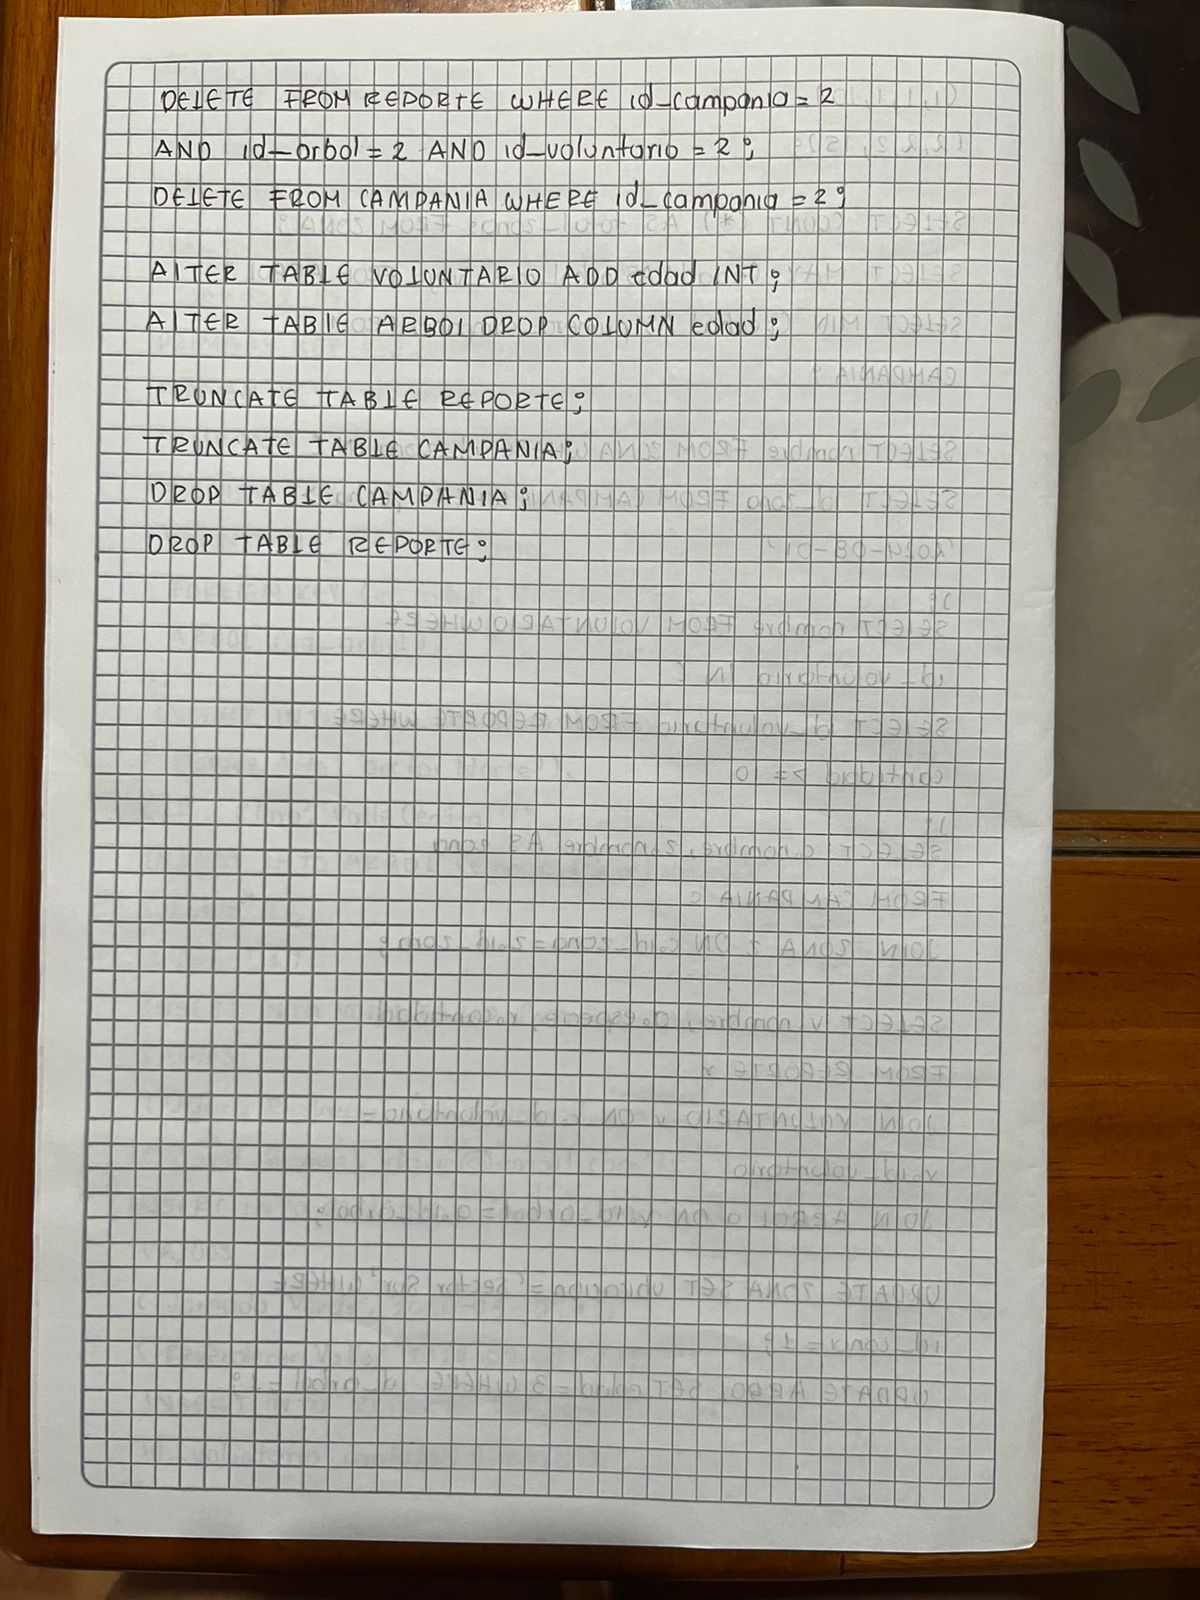 DELETE FROM REPORTE WHERE id_campania = 2
AND id_arbol = 2 AND id_voluntario = 2;
DELETE FROM CAMPANIA WHERE id_campania = 2;
ALTER TABLE VOLUNTARIO ADD edad INT;
ALTER TABLE ARBOL DROP COLUMN edad;
TRUNCATE TABLE REPORTE;
TRUNCATE TABLE CAMPANIA;
DROP TABLE CAMPANIA;
DROP TABLE REPORTE;